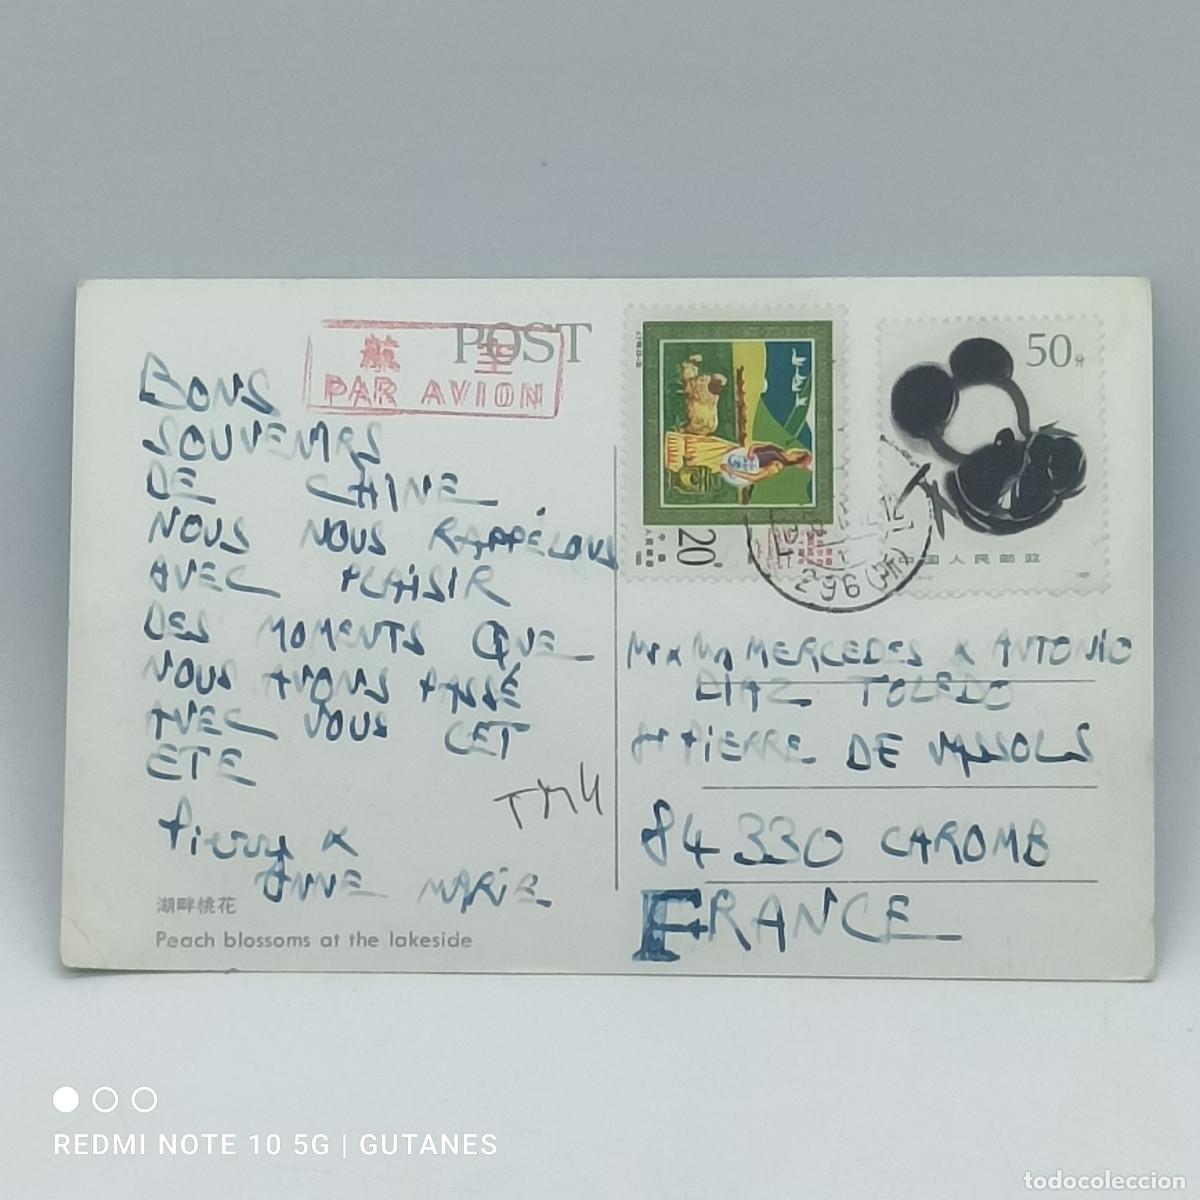 POST
航空
PAR AVION
BONS
SOUVENIRS
DE CHINE
NOUS NOUS RAPPELONS
AVEC PLAISIR
DES MOMENTS QUE
NOUS AVONS PASSÉ
AVEC VOUS CET
ETE
Pierre &
ANNE MARIE
湖畔桃花
Peach blossoms at the lakeside
20
50分
中国人民邮政
MERCEDES & ANTONIO
DIAZ TOLEDO
St PIERRE DE VASSOLS
84 330 CAROMB
FRANCE
REDMI NOTE 10 5G | GUTANES
todocoleccion